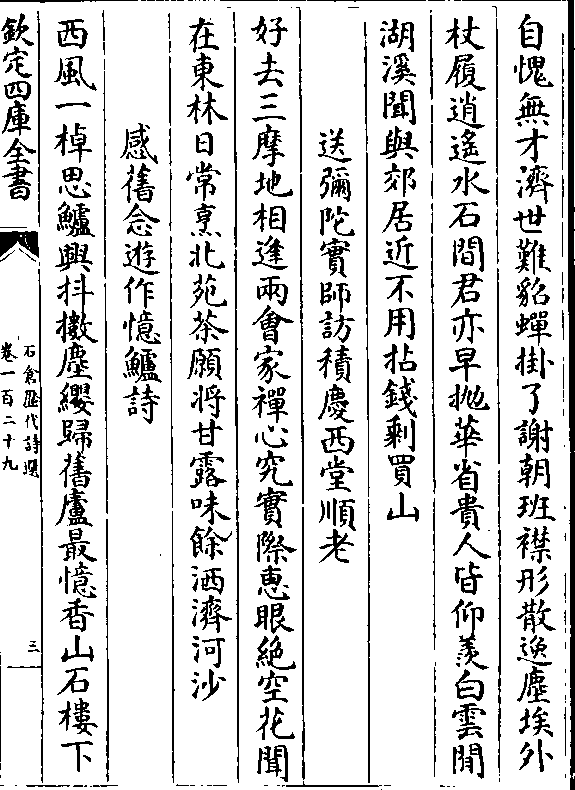 自愧無才濟世難貂蟬掛了謝朝班襟形散逸塵埃外
杖履逍遙水石間君亦早抛華省貴人皆仰羨白雲閒
湖溪聞與郊居近不用拈錢剩買山
送彌陀實師訪積慶西堂順老
好去三摩地相逢兩會家禪心究實際惠眼絕空花聞
在東林日常烹北苑茶願将甘露味餘洒濟河沙
感舊念遊作憶鱸詩
西風一棹思鱸興抖擻塵纓歸舊廬最憶香山石樓下
欽定四庫全書
石倉歷代詩選
卷一百二十九
三